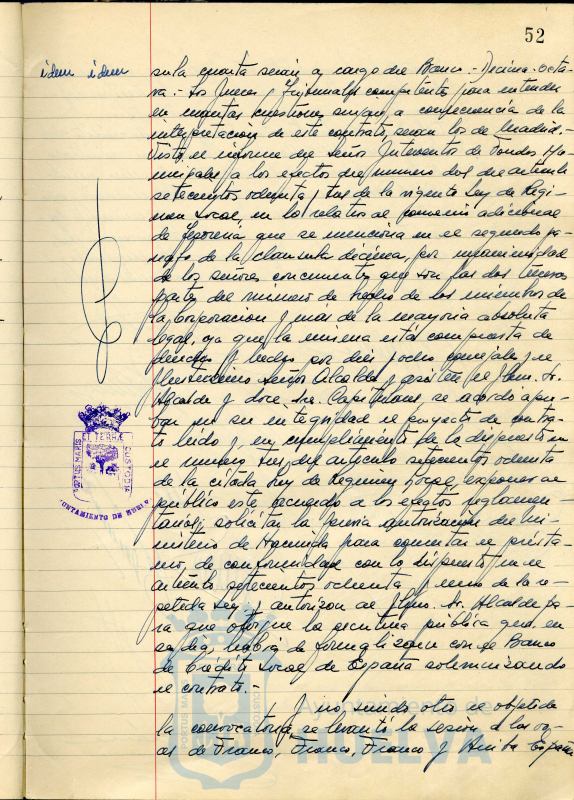 52
idem idem
sula cuanta serán a cargo del Banco.- Decima octa-
va.- Los Jueces y Tribunales competentes para entender
en cuantas cuestiones surjan a consecuencia de la
interpretación de este contrato, seran los de Madrid.-
Visto, el informe del Señor Interventor de Fondos Mu-
nicipales, a los efectos del numero dos del articulo
setecientos ochenta y tres de la vigente Ley de Regi-
men Local, en lo relativo al convenio adicional
de Tesoreria que se menciona en el segundo pa-
rrafo de la clausula décima, por unanimidad
de los señores concurrentes que son las dos terceras
partes del número de hecho de los miembros de
la Corporacion y más de la mayoria absoluta
legal, ya que la misma está compuesta de
derecho y hecho por diez y ocho concejales y el
Ilustrisimo Señor Alcalde y asisten el Ilmo. Sr.
Alcalde y doce Sres. Capitulares, se acordó apro-
bar en su integridad el proyecto de contra-
to leido y, en cumplimiento de lo dispuesto en
el numero tres del articulo setecientos ochenta
de la citada Ley de Regimen Local, exponer al
público este acuerdo a los efectos reglamen-
tarios; solicitar la previa autorización del Mi-
nisterio de Hacienda para concertar el présta-
mo, de conformidad con lo dispuesto en el
articulo setecientos ochenta y uno de la re-
petida Ley y autorizar al Ilmo. Sr. Alcalde pa-
ra que otorgue la escritura pública que en
su dia, habrá de formalizarse con el Banco
de Crédito Local de España solemnizando
el contrato.
Y no siendo otro el objeto de
la convocatoria, se levantó la sesión a los vo-
ces de Franco, Franco, Franco y Arriba España
PORTUS MARIS
ET TERRAE
CUSTODIA
AYUNTAMIENTO DE HUELVA
Ayuntamiento de
HUELVA